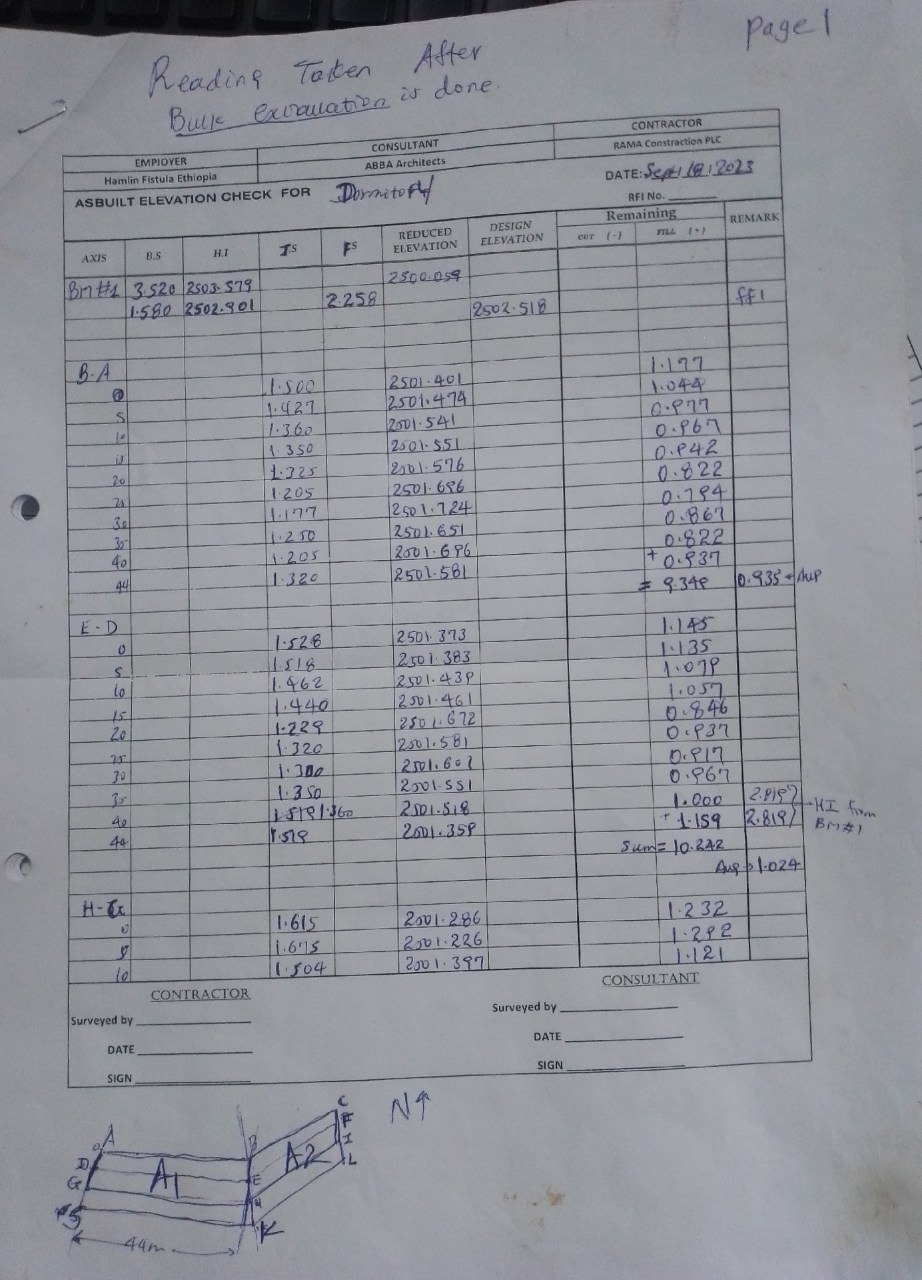 page 1
Reading Taken After
Bulk excavation is done.
EMPIOYER CONSULTANT CONTRACTOR
Hamlin Fistula Ethiopia ABBA Architects RAMA Constraction PLC
ASBUILT ELEVATION CHECK FOR Dormitory DATE: Sept/18/2023
RFI No.
AXIS B.S H.I IS FS REDUCED ELEVATION DESIGN ELEVATION Remaining CUT (-) FILL (+) REMARK
BM#1 3.520 2503.579 2500.059
1.580 2502.901 2.258 2502.518 ff1
B-A 1.177
0 1.500 2501.401 1.044
5 1.427 2501.474 0.977
10 1.360 2501.541 0.967
15 1.350 2501.551 0.942
20 1.325 2501.576 0.822
25 1.205 2501.696 0.794
30 1.177 2501.724 0.867
35 1.250 2501.651 0.822
40 1.205 2501.696 + 0.937
44 1.320 2501.581 = 9.349 0.935 = Avg
E-D 1.145
0 1.528 2501.373 1.135
5 1.518 2501.383 1.079
10 1.462 2501.439 1.057
15 1.440 2501.461 0.846
20 1.229 2501.672 0.937
25 1.320 2501.581 0.917
30 1.300 2501.601 0.967
35 1.350 2501.551 1.000 2.819
40 1.360 2501.518 + 1.159 2.819 HI from BM#1
44 1.519 2501.359 Sum = 10.242
Avg = 1.024
H-G 1.232
0 1.615 2501.286 1.292
5 1.675 2501.226 1.121
10 1.504 2501.397
CONTRACTOR CONSULTANT
Surveyed by Surveyed by
DATE DATE
SIGN SIGN
N
A B C
D E F
G H I
K L
A1 A2
44m